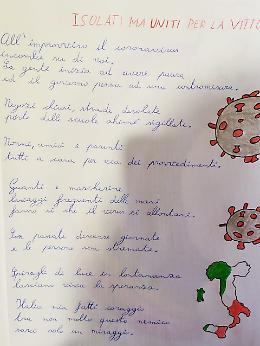 ISOLATI MA UNITI PER LA VITTO
All'improvviso il coronavirus
incombe su di noi.
La gente inizia ad avere paura
ed il governo pensa ad una contromisura.
Negozi chiusi, strade desolate
porte delle scuole ahimé sigillate.
Nonni, amici e parenti
tutti a casa per via dei provvedimenti.
Guanti e mascherine
lavaggi frequenti delle mani
fanno sì che il virus si allontani.
Son passate diverse giornate
e le persone son stremate.
Spiragli di luce in lontananza
lasciano viva la speranza.
Italia mia fatti coraggio
tra non molto questo nemico
sarà solo un miraggio.